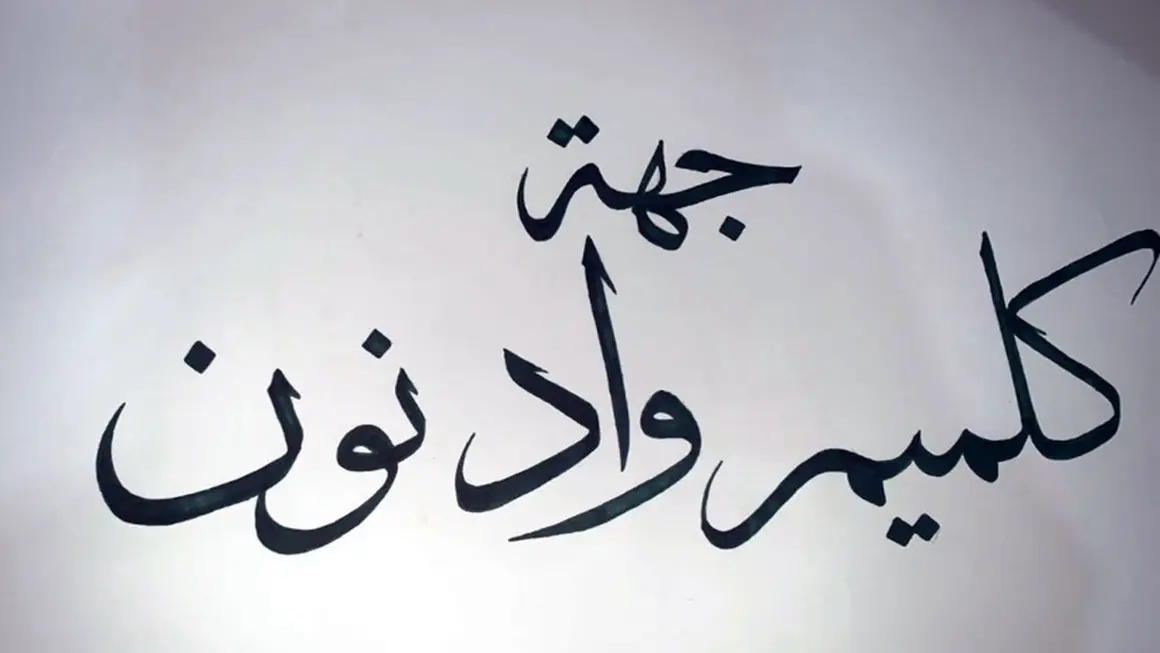 جهة
كلميم واد نون